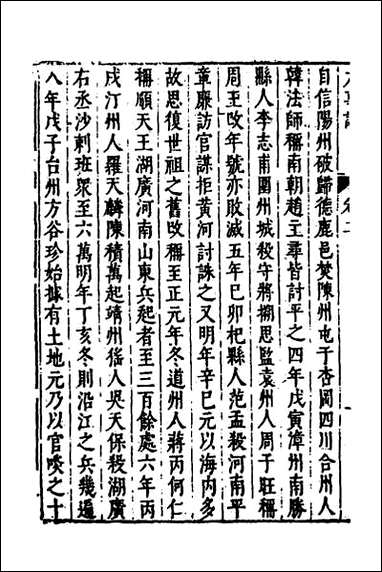 自信陽州破歸德鹿邑焚陳州屯于杏岡四川合州人
韓法師稱南朝趙王尋皆討平之四年戊寅漳州南勝
縣人李志甫圍州城殺守將搠思監袁州人周子旺稱
周王攺年號亦敗滅五年己卯杞縣人范孟殺河南平
章廉訪官謀拒黃河討誅之又明年辛巳元以海内多
故思復世祖之舊攺稱至正元年冬道州人蔣丙何仁
稱順天王湖廣河南山東兵起者至三百餘處六年丙
戌汀州人羅天麟陳積萬起靖州傜人吳天保殺湖廣
右丞沙剌班眾至六萬明年丁亥冬則沿江之兵幾遍
八年戊子台州方谷珍始據有土地元乃以官喚之十